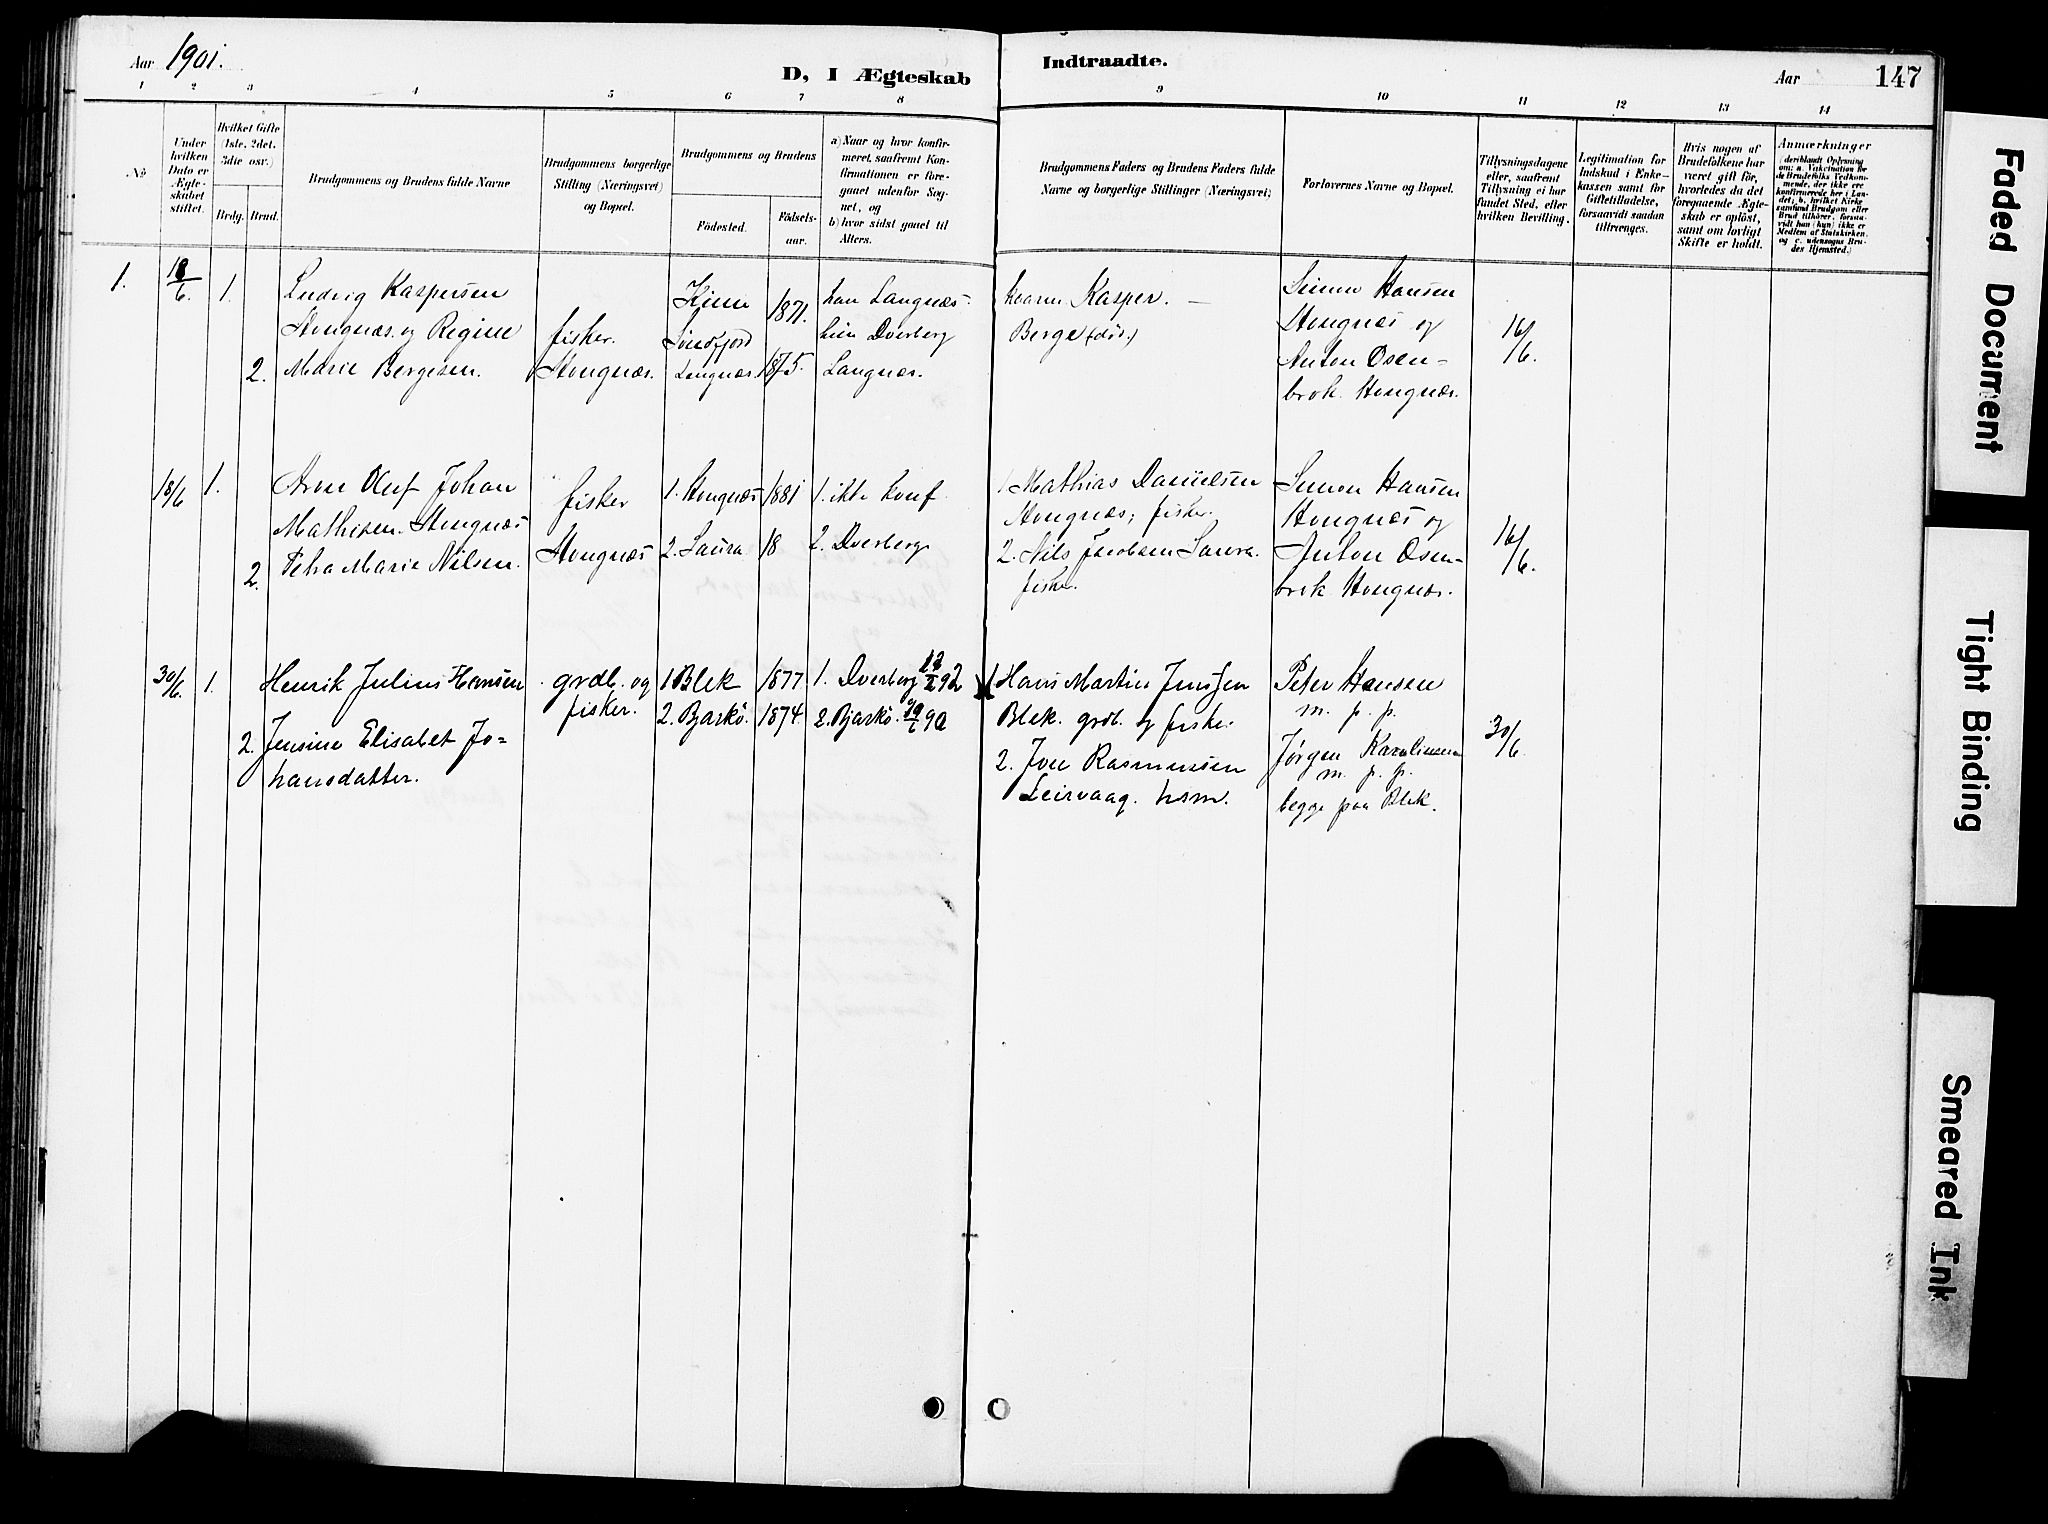 Aar 1901.
D, I Ægteskab
Indtraadte.
Aar
147
1 2 3 4 5 6 7 8 9 10 11 12 13 14
No
Under
hvilken
Dato er
Ægte-
skabet
stiftet.
Hvilket Gifte
(1ste, 2det,
3die osv.)
Brdg.
Brud.
Brudgommens og Brudens fulde Navne
Brudgommens borgerlige
Stilling (Næringsvei)
og Bopæl.
Brudgommens og Brudens
Fødested.
Fødsels-
aar.
a) Naar og hvor konfir-
meret, saafremt Kon-
firmationen er fore-
gaaet udenfor Sog-
net, og
b) hvor sidst gaaet til
Alters.
Brudgommens Faders og Brudens Faders fulde
Navne og borgerlige Stillinger (Næringsvei)
Forlovernes Navne og Bopæl.
Tillysningsdagene
eller, saafremt
Tillysning ei har
fundet Sted, efter
hvilken Bevilling.
Legitimation for
Indskud i Enke-
kassen samt for
Giftetilladelse,
forsaavidt saadan
tiltrænges.
Hvis nogen af
Brudefolkene har
været gift før,
hvorledes da det
foregaaende Ægte-
skab er opløst,
samt om lovligt
Skifte er holdt.
Anmærkninger
(deriblandt Oplysning
om: a. Vakcination for
de Brudefolks Vedkom-
mende, der ikke ere
konfirmerede her i Lan-
det; b. hvilket Kirke-
samfund Brudgom eller
Brud tilhører, forsaa-
vidt han (hun) ikke er
Medlem af Statskirken,
og c. udensogns Bru-
des Hjemsted.)
1. 18/6. 1.
Ludvig Kaspersen
Stongnæs og Regine
2. Marie Bergesen.
fisker.
Stongnæs.
Kinn
Søndfjord
Langnæs.
1871.
1875.
han Langnæs-
hun Dverberg
Langnæs.
Kasper. —
Berge (død.)
Simon Hansen
Stongnæs og
Anton Osen-
brok. Stongnæs.
16/6.
18/6 1.
Arne Oluf Johan
Mathisen. Stongnæs
2. Petra Marie Nilsen.
fisker
Stongnæs
1. Stongnæs
2. Saura
1881
18
1. ikke konf.
2. Dverberg
1. Mathias Danielsen
Stongnæs; fisker.
2. Nils Jacobsen Saura.
fisker.
Simon Hansen
Stongnæs og
Anton Osen-
brok Stongnæs.
16/6.
30/6 1.
Henrik Julius Hansen
2. Jensine Elisabet Jo-
hansdatter.
grdb. og
fisker.
1. Blek
2. Bjarkö.
1877
1874.
1. Dverberg 92
2. Bjarkö. 90
1. Hans Martin Jenssen
Blek. grdb. og fisker.
2. Joh Rasmussen
Leirvaag. hsm.
Peter Hansen
m. p. p.
Jørgen Karoliussen
m. p. p.
begge paa Blek.
30/6.
Faded Document
Tight Binding
Smeared Ink